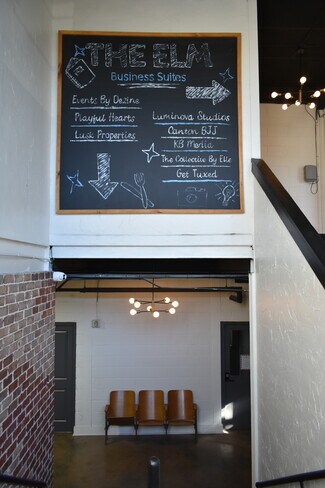 THE ELM
Business Suites
Events By Dezine
Playful Hearts
Lusk Properties
Luminova Studios
Canton BJJ
KB Media
The Collective By Elle
Get Tuxed